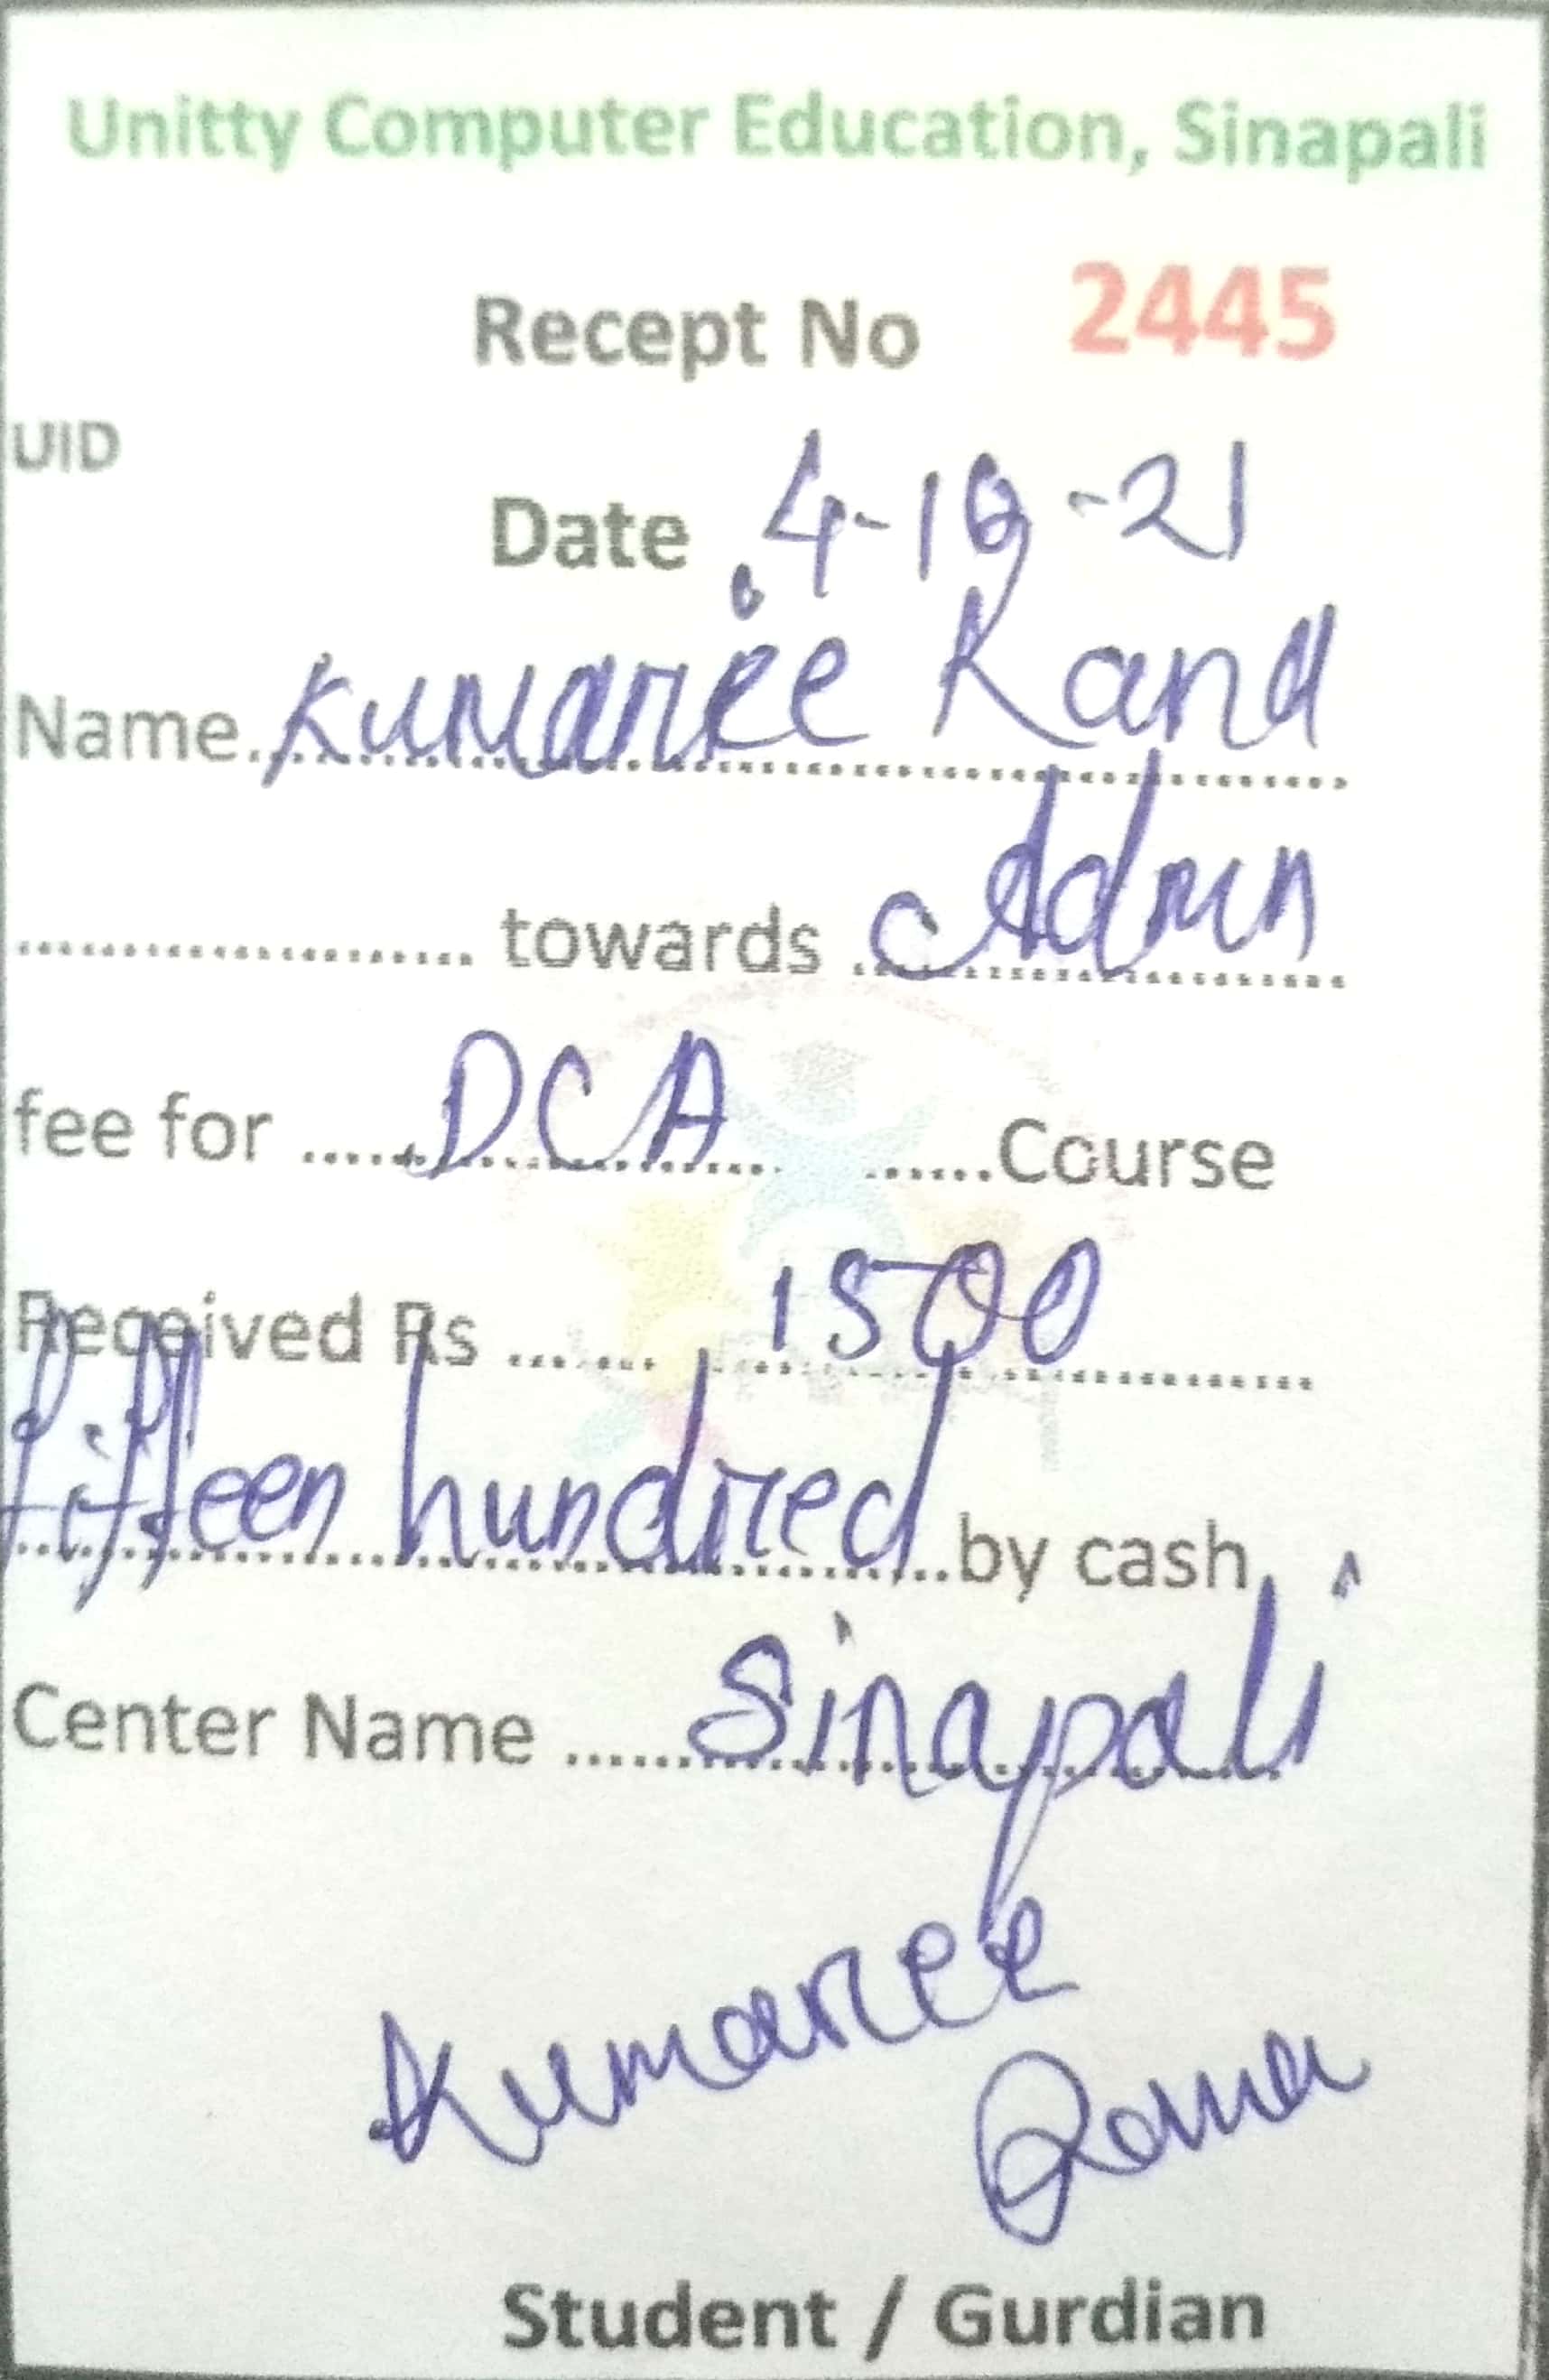 Unitty Computer Education, Sinapali
Recept No 2445
UID
Date 4-10-21
Name Kumaree Rana
towards Admn
fee for DCA Course
Received Rs 1500
fifteen hundred by cash
Center Name Sinapali
Kumaree
Rana
Student / Gurdian